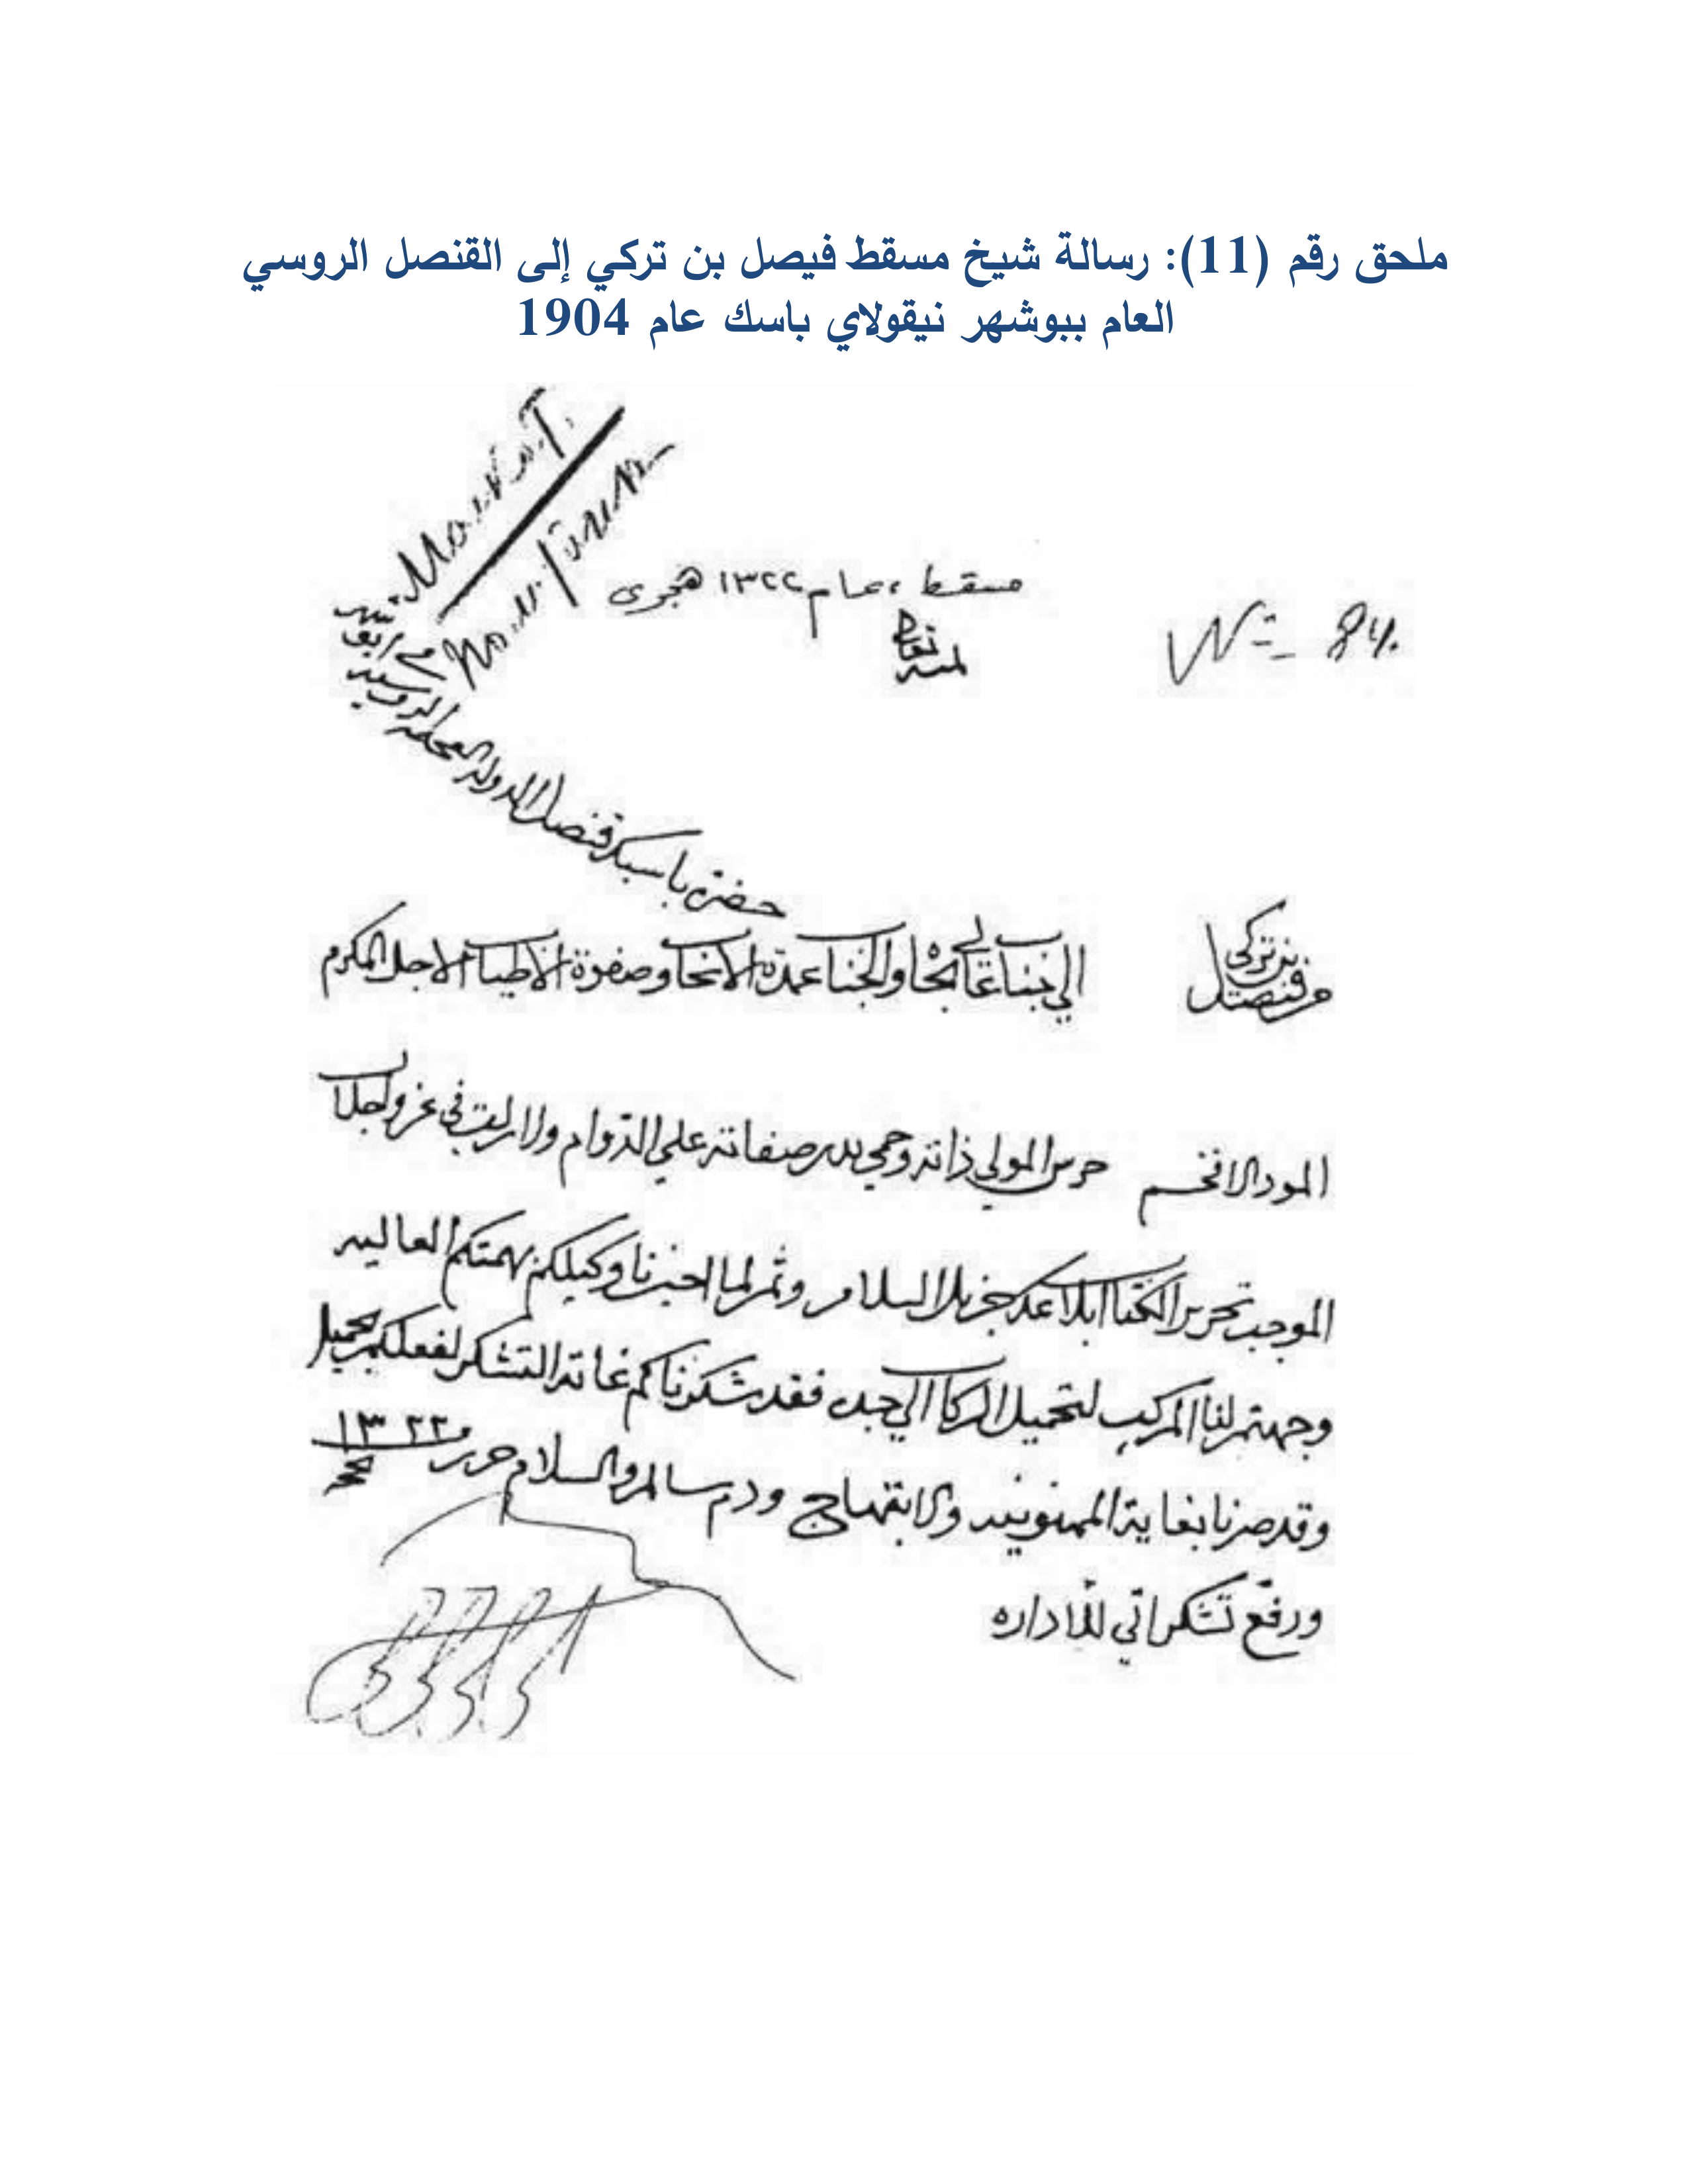 ملحق رقم (11): رسالة شيخ مسقط فيصل بن تركي إلى القنصل الروسي
العام ببوشهر نيقولاي باسك عام 1904
مسقط، عام ١٣٢٢ هجرى
№ 84.
لمنه تعالى
حضرة باسيك قنصل الدولة الفخيمه الروسيه في ابوشهر
من فيصل بن تركي
الى جناب عالي الجاه والجناب عمدة الانجاب وصفوة الاطياب الاجل المكرم
المود الافخم حرس المولى ذاته وحمى صفاته على الدوام ولا زلت في عز واجلال
الموجب تحرير الكتاب ابلاغك جزيل السلام وثم لما اخبرنا وكيلكم بهمتكم العاليه
وجهتم لنا المركب لتحميل الركاب الى جده فقد شكرناكم غاية التشكر لفعلكم الجميل
وقد صرنا بغاية الممنونيه والابتهاج ودم سالم والسلام حرر ١٣٢٢
ورفع تشكراتي للاداره